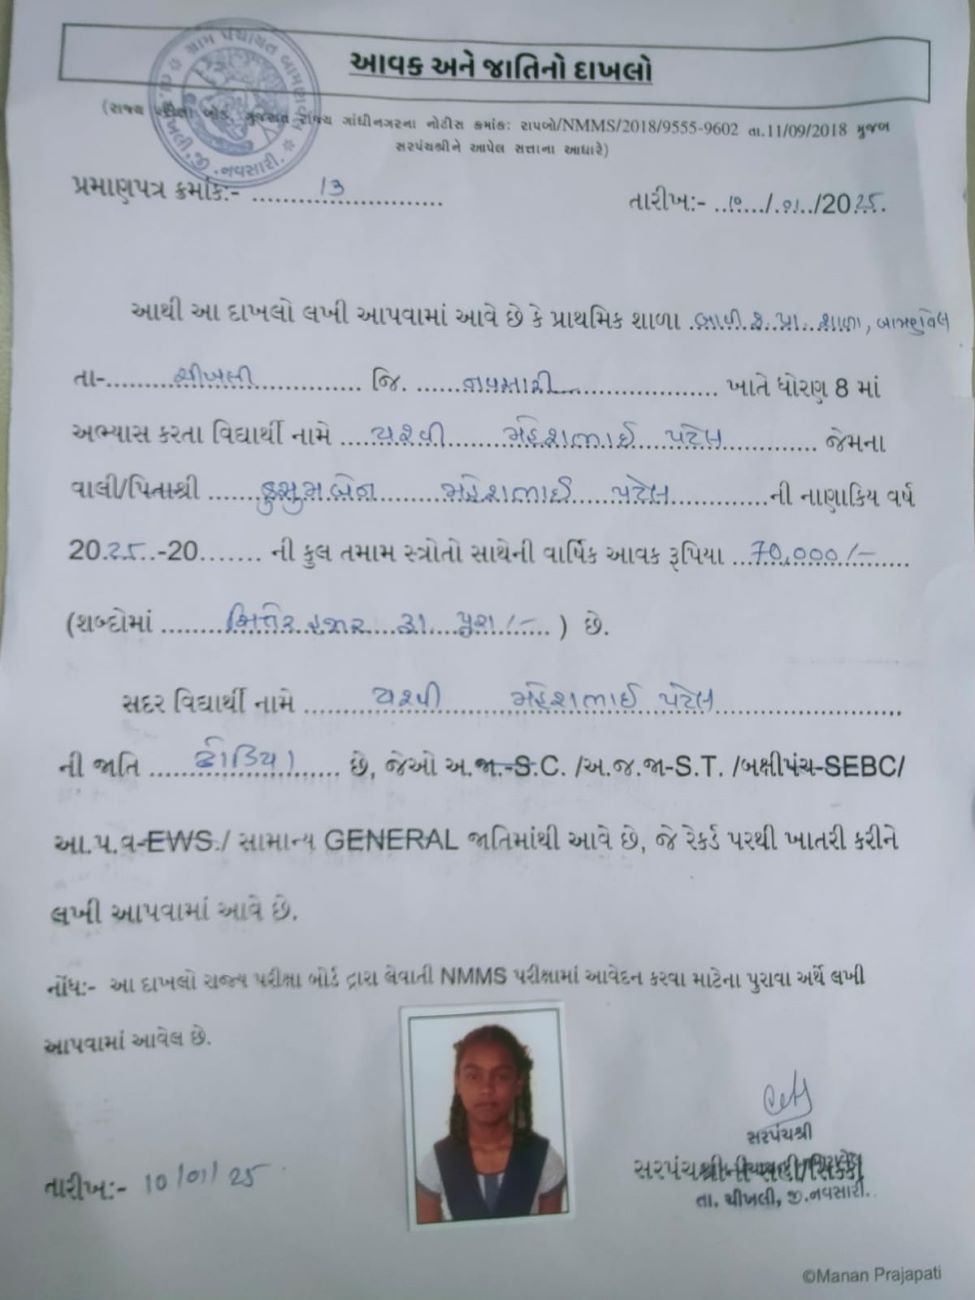 ગ્રામ પંચાયત
જી. નવસારી.
આવક અને જાતિનો દાખલો
(રાજ્ય પરીક્ષા બોર્ડ, ગુજરાત રાજ્ય ગાંધીનગરના નોટીસ ક્રમાંક: રાપબો/NMMS/2018/9555-9602 તા.11/09/2018 મુજબ
સરપંચશ્રીને આપેલ સત્તાના આધારે)
પ્રમાણપત્ર ક્રમાંક:- 13
તારીખ:- ૧૦/૦૧/2025.
આથી આ દાખલો લખી આપવામાં આવે છે કે પ્રાથમિક શાળા પ્રા. શાળા,
તા- ચીખલી જિ. નવસારી ખાતે ધોરણ 8 માં
અભ્યાસ કરતા વિદ્યાર્થી નામે યશ્વી મહેશભાઈ પટેલ જેમના
વાલી/પિતાશ્રી કુસુમબેન મહેશભાઈ પટેલ ની નાણાકિય વર્ષ
2025-20....... ની કુલ તમામ સ્ત્રોતો સાથેની વાર્ષિક આવક રૂપિયા 70,000/-
(શબ્દોમાં સિત્તેર હજાર રૂા પુરા/-) છે.
સદર વિદ્યાર્થી નામે યશ્વી મહેશભાઈ પટેલ
ની જાતિ ઢોડિયા છે, જેઓ અ.જા.-S.C. /અ.જ.જા-S.T. /બક્ષીપંચ-SEBC/
આ.પ.વ-EWS./ સામાન્ય GENERAL જાતિમાંથી આવે છે, જે રેકર્ડ પરથી ખાતરી કરીને
લખી આપવામાં આવે છે.
નોંધ:- આ દાખલો રાજ્ય પરીક્ષા બોર્ડ દ્વારા લેવાતી NMMS પરીક્ષામાં આવેદન કરવા માટેના પુરાવા અર્થે લખી
આપવામાં આવેલ છે.
સરપંચશ્રી
સરપંચશ્રીની સહી/સિક્કો
તા. ચીખલી, જી.નવસારી.
તારીખ:- 10/01/25
©Manan Prajapati